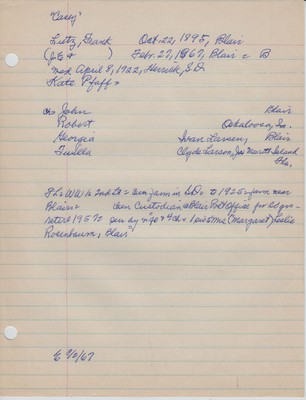 "Casey"
Lutz, Frank Oct. 22, 1895, Blair
(J.C. & ) Feb. 27, 1967, Blair = B
md April 8, 1922, Herrick, S.D.
Kate Pfaff =
ch John Blair
Robert Oskaloosa, Ia.
Georgia Ivan Larsen, Blair
Twilla Clyde Larson, Jr North Island
WWI 2nd Lt = farm in S.D. to 1925 = farm near
Blair = then Custodian @ Blair Post Office for 20 yrs =
retired 1957 = 4 ch + 1 sis Mrs (Margaret) Leslie
Rosenbaum, Blair
E 3/2/67